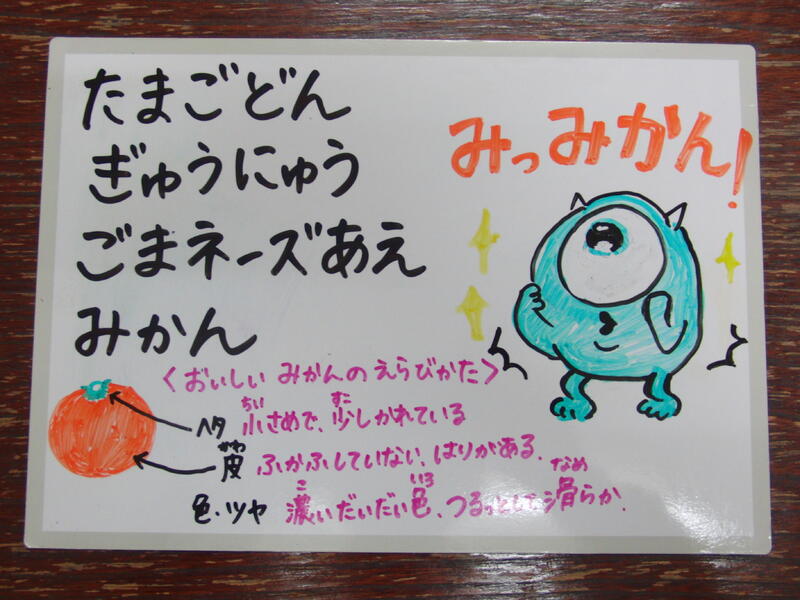 たまごどん
ぎゅうにゅう
ごまネーズあえ
みかん
みっみかん!
〈おいしい みかんの えらびかた〉
ヘタ 小さめで、少しかれている
ちい すこ
皮 ふかふしていない、はりがある。
かわ
色・ツヤ 濃いだいだい色、つるっとして滑らか。
こ いろ なめ